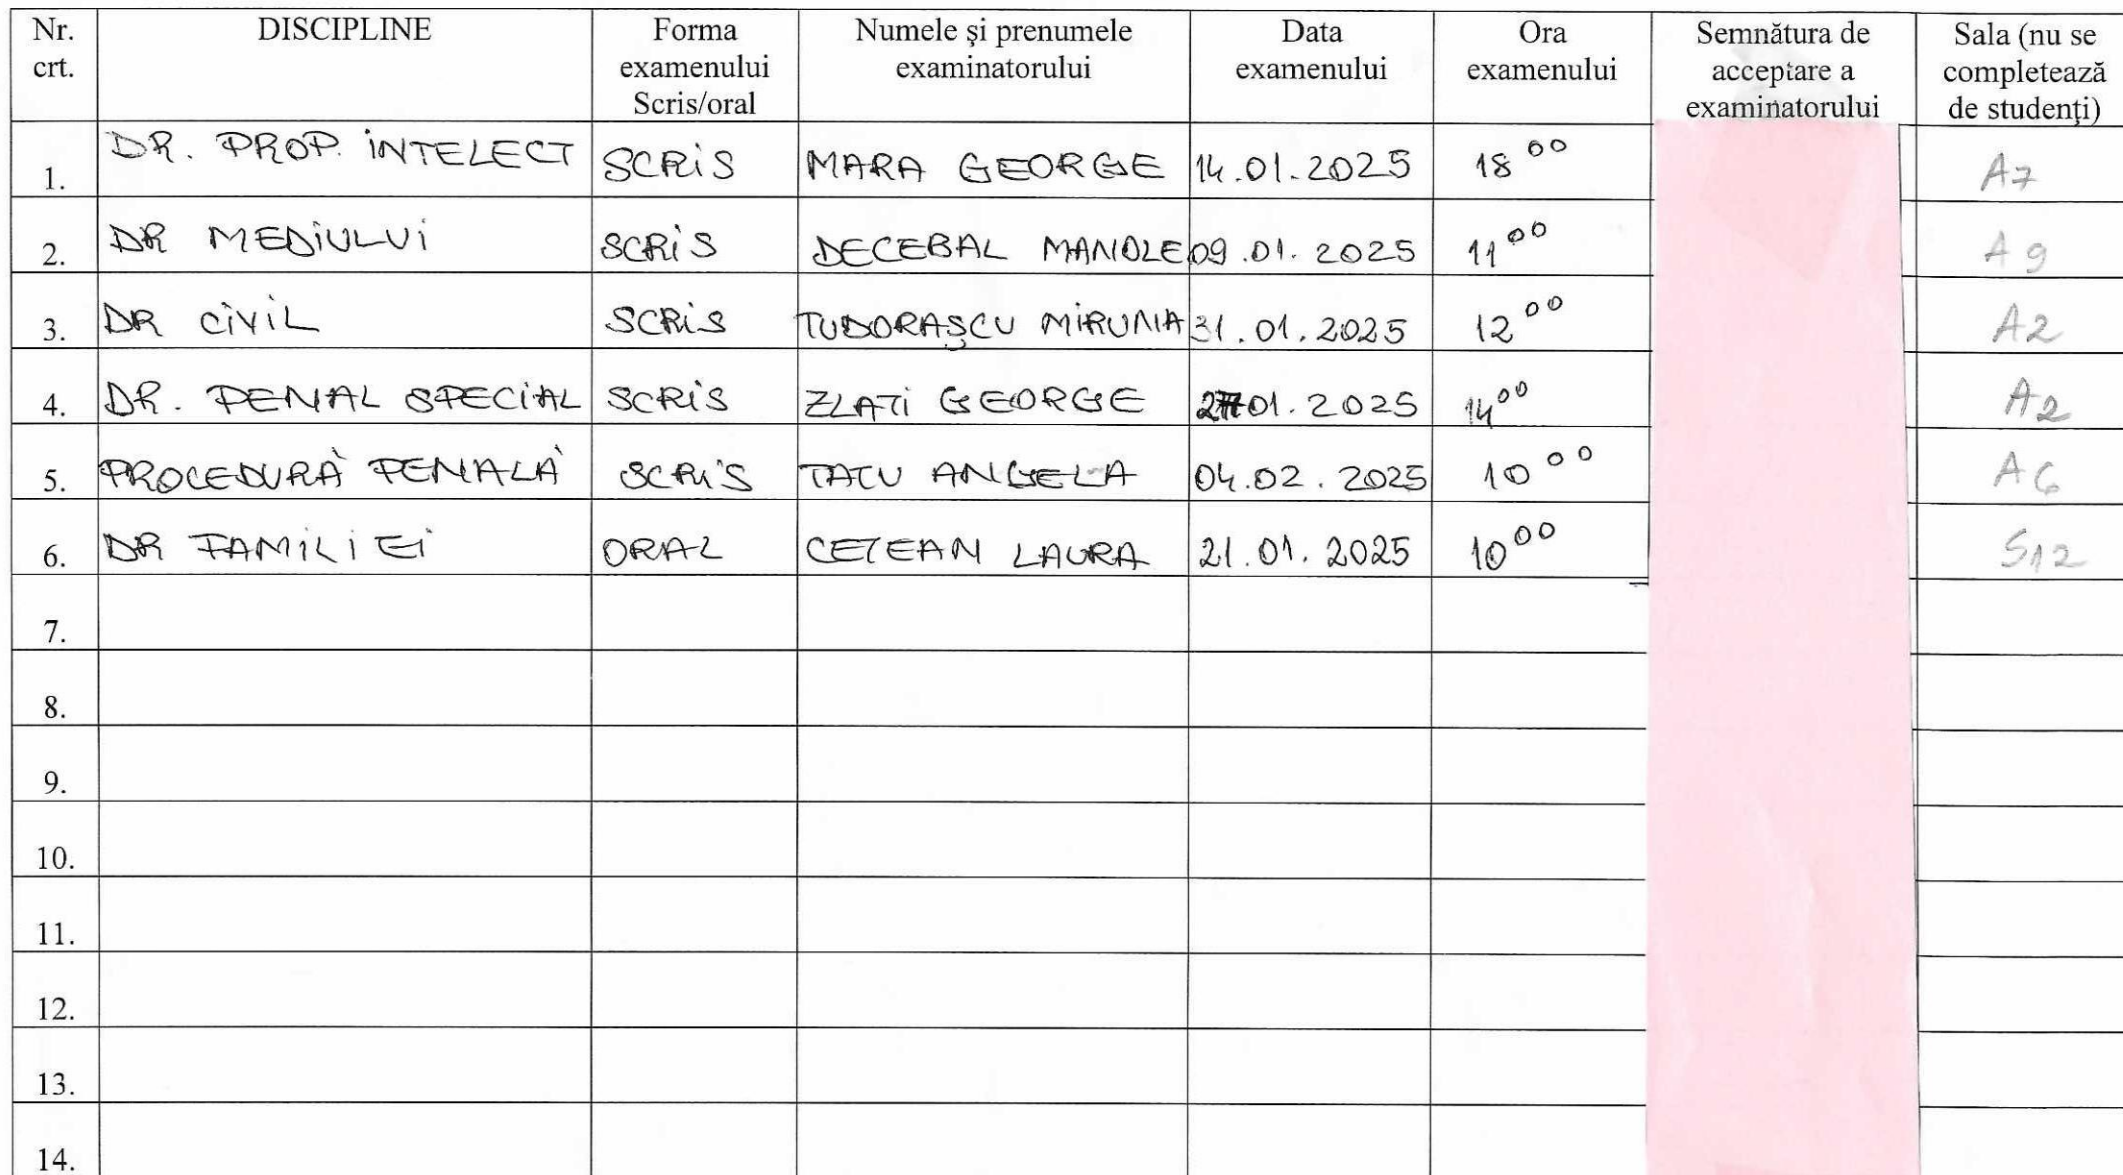 Nr. crt. DISCIPLINE Forma examenului Scris/oral Numele și prenumele examinatorului Data examenului Ora examenului Semnătura de acceptare a examinatorului Sala (nu se completează de studenți)
1. DR. PROP. INTELECT SCRIS MARA GEORGE 14.01.2025 18 00 A7
2. DR MEDIULUI SCRIS DECEBAL MANOLE 09.01.2025 11 00 A9
3. DR CIVIL SCRIS TUDORAȘCU MIRUNA 31.01.2025 12 00 A2
4. DR. PENAL SPECIAL SCRIS ZLATI GEORGE 01.2025 14 00 A2
5. PROCEDURĂ PENALĂ SCRIS TATU ANGELA 04.02.2025 10 00 A6
6. DR FAMILIEI ORAL CETEAN LAURA 21.01.2025 10 00 S12
7.
8.
9.
10.
11.
12.
13.
14.